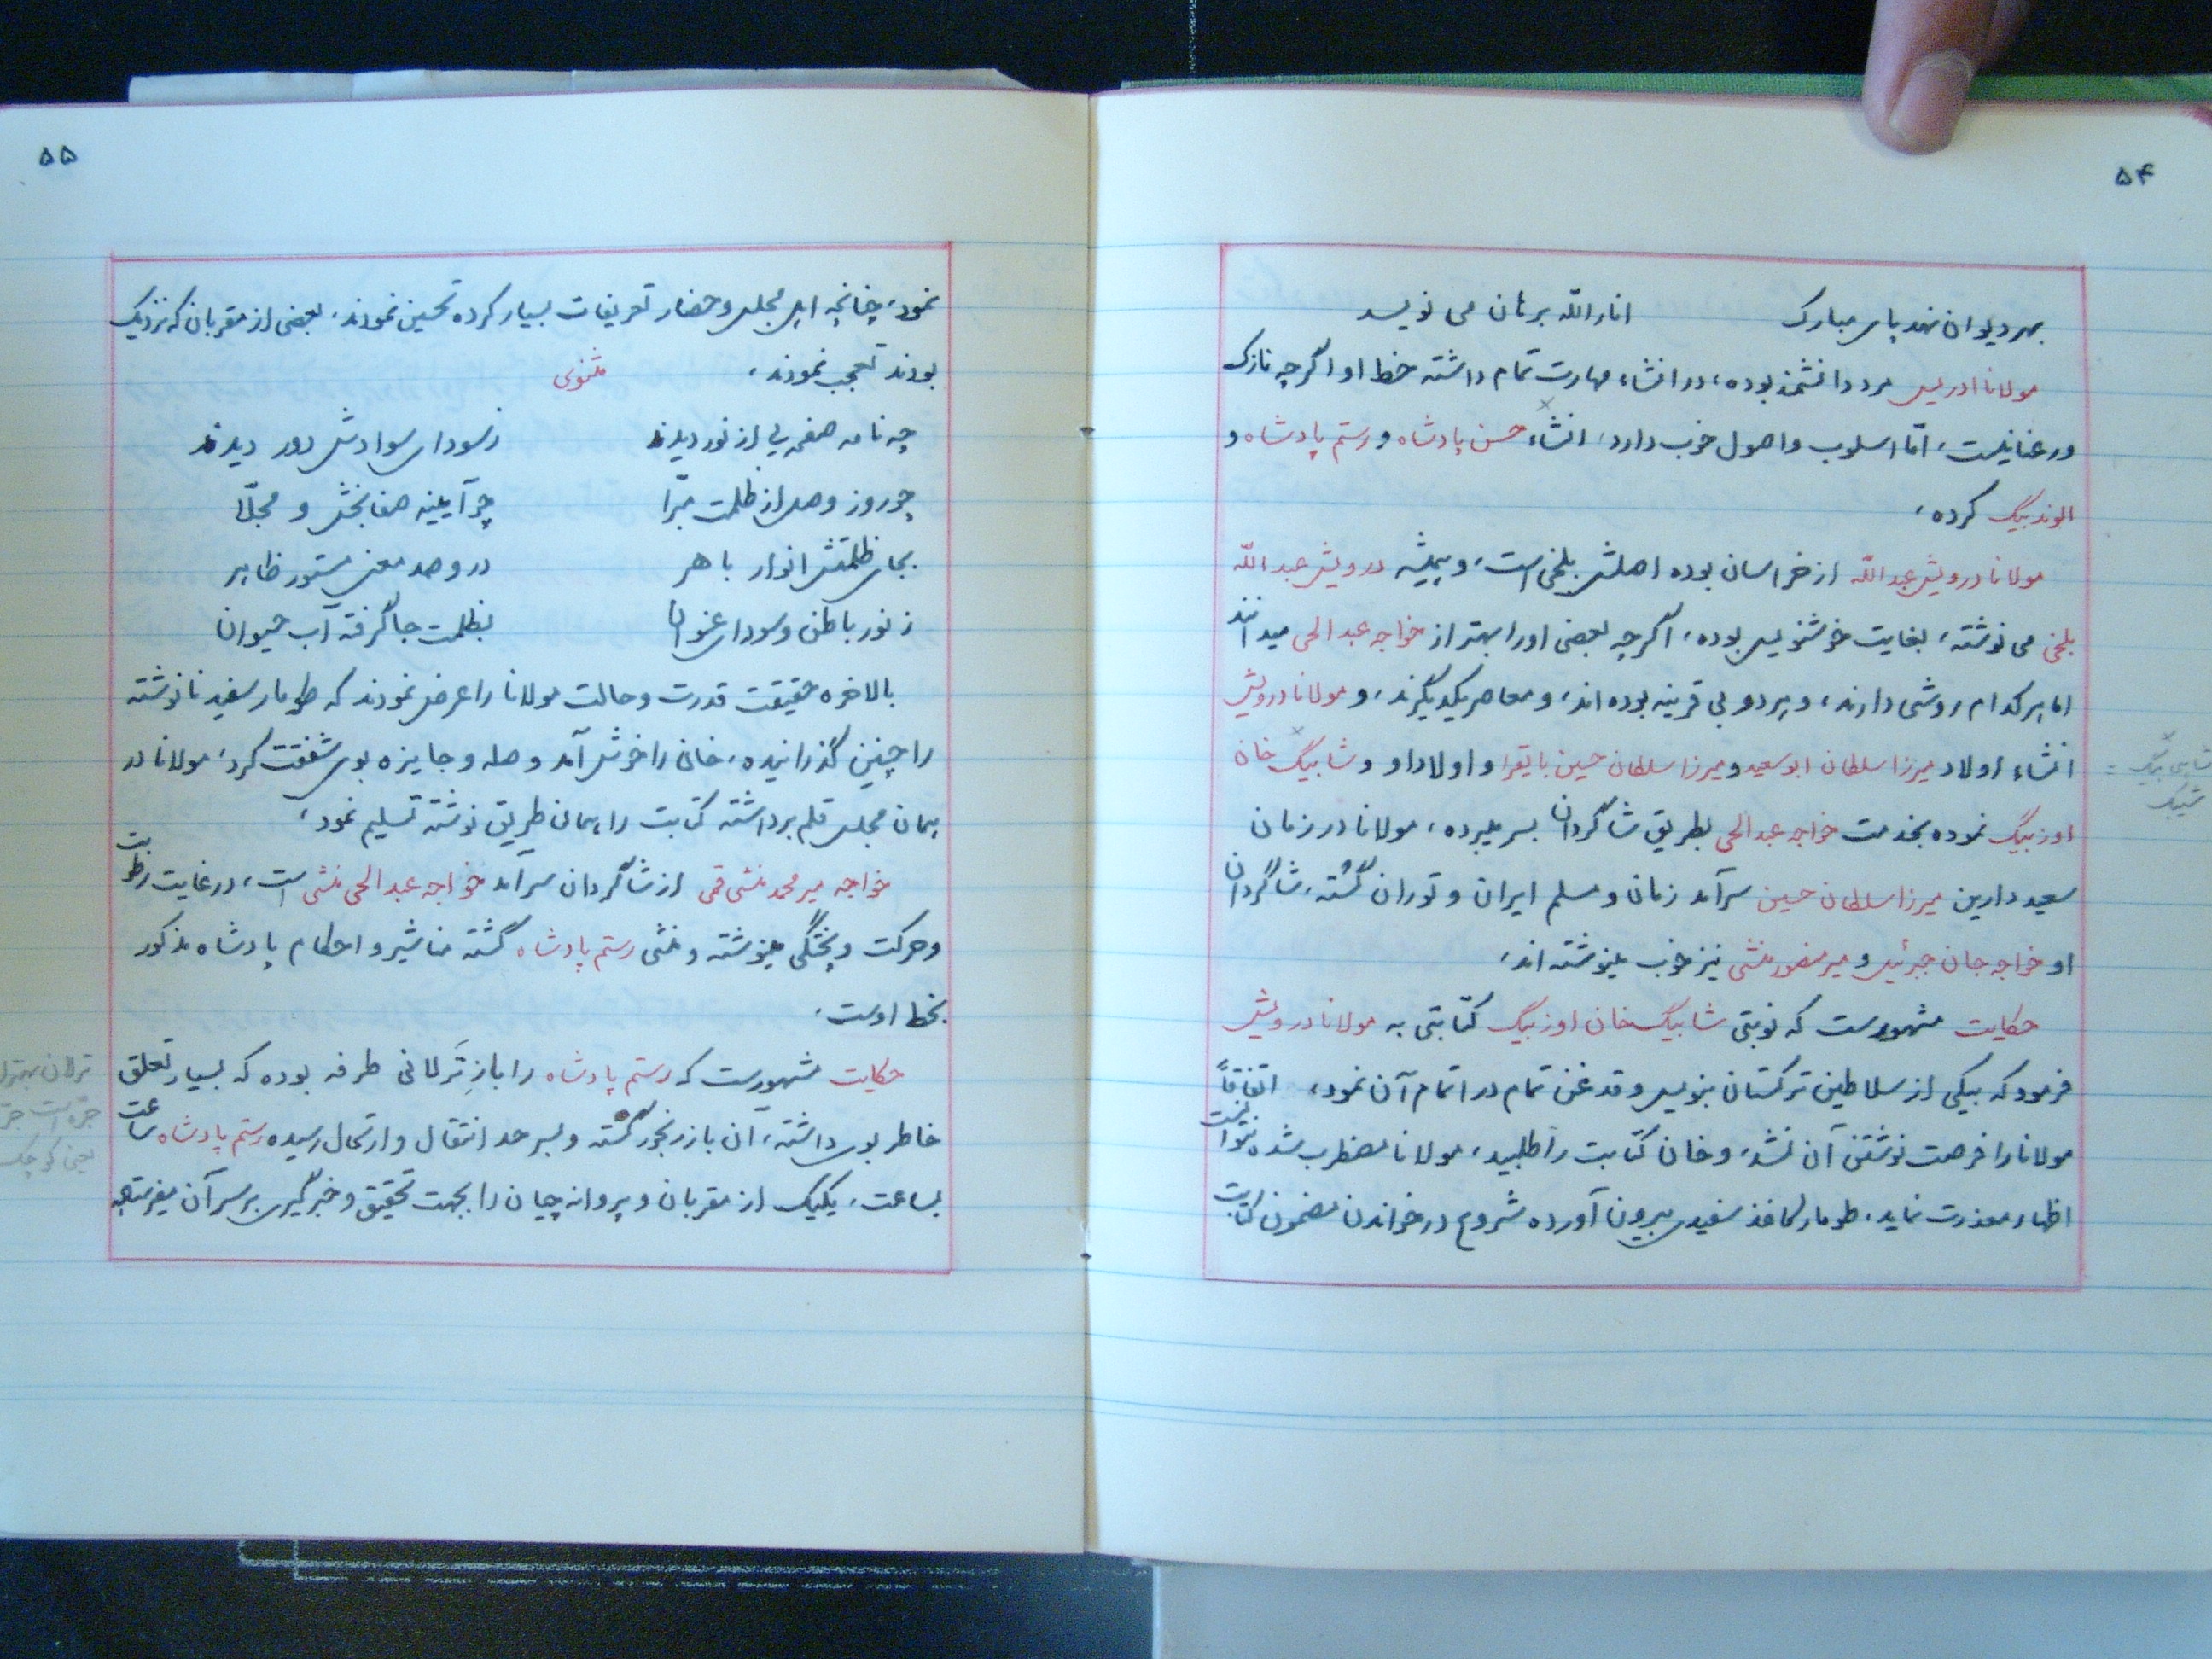 ۵۴
بهر دیوان نهد پای مبارک انار الله برهان می نویسد
مولانا ادریس مرد دانشمند بوده، در انشاء مهارت تمام داشته خط او اگرچه نازک
و رعنا نیست، امّا اسلوب و اصول خوب دارد، انشاء حسن پادشاه و رستم پادشاه و
الوند بیگ کرده،
مولانا درویش عبدالله از خراسان بوده اصلش بلخی است، و همیشه درویش عبدالله
بلخی می نوشته، بغایت خوشنویس بوده، اگرچه بعضی او را بهتر از خواجه عبدالحی میدانند
اما هر کدام روشی دارند، و هر دو بی قرینه بوده اند، و معاصر یکدیگرند، و مولانا درویش
انشاء اولاد میرزا سلطان ابوسعید و میرزا سلطان حسین بایقرا و اولاد او و شابیگ خان
اوزبیگ نموده بخدمت خواجه عبدالحی بطریق شاگردان بسر میبرده، مولانا در زمان
سعید دارین میرزا سلطان حسین سرآمد زمان و مسلم ایران و توران گشته، شاگردان
او خواجه جان جبرئیل و میر منصور منشی نیز خوب مینوشته اند،
حکایت مشهورست که نوبتی شابیگ خان اوزبیگ کتابتی به مولانا درویش
فرمود که بیکی از سلاطین ترکستان بنویسد و قدغن تمام در اتمام آن نمود، اتفاقاً
مولانا را فرصت نوشتن آن نشد، و خان کتابت را طلبید، مولانا مضطرب شده نتوانست
اظهار معذرت نماید، طومار کاغذ سفیدی بیرون آورده شروع در خواندن مضمون کتابت
شاهی بیگ =
شیبک
۵۵
نمود، چنانچه اهل مجلس و حضار تعریفات بسیار کرده تحسین نمودند، بعضی از مقربان که نزدیک
بودند تعجب نمودند، مثنوی
چه نامه صفحه یی از نور دیدند ز سودای سوادش دور دیدند
چو روز وصل از ظلمت مبرّا چو آیینه صفا بخش و مجلّا
بجای ظلمتش انوار باهر در و صد معنی مستور ظاهر
ز نور باطن و سودای عنوان بظلمت جا گرفته آب حیوان
بالاخره حقیقت قدرت و حالت مولانا را عرض نمودند که طومار سفید نانوشته
را چنین گذرانیده، خان را خوش آمد و صله و جایزه بوی شفقت کرد، مولانا در
همان مجلس قلم برداشته کتابت را بهمان طریق نوشته تسلیم نمود،
خواجه میر محمد منشی قمی از شاگردان سرآمد خواجه عبدالحی منشی است، در غایت رطوبت
و حرکت و پختگی مینوشته و منشی رستم پادشاه گشته مناشیر و احکام پادشاه مذکور
بخط اوست،
حکایت مشهورست که رستم پادشاه را بازِ تَرلانی طرفه بوده که بسیار تعلق
خاطر بوی داشته، آن باز رنجور گشته و بسر حد انتقال و ارتحال رسیده رستم پادشاه ساعت
بساعت، یکیک از مقربان و پروانه چیان را بجهت تحقیق و خبرگیری بر سر آن میفرستاده
ترلان بهتر از
جره است
یعنی کوچک